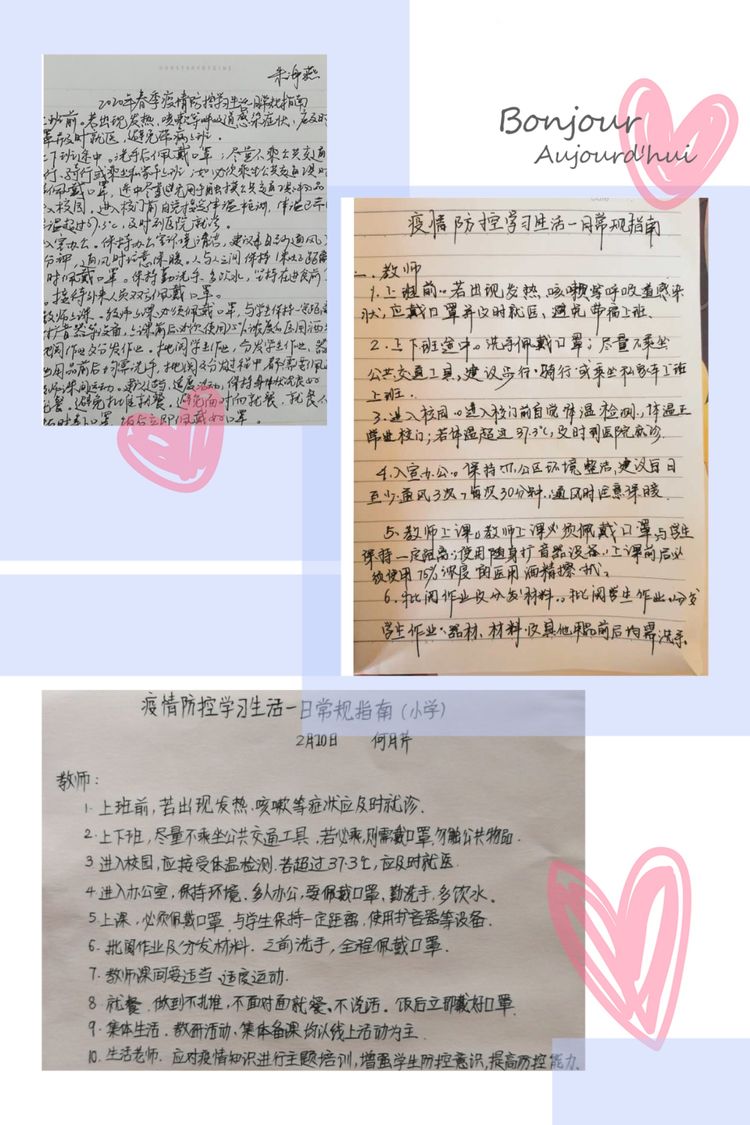 朱海燕
2020年春季疫情防控学习生活一日常规指南
班前。若出现发热、咳嗽等呼吸道感染症状，应及时
及时就医，避免带病上班。
下班途中。洗手后佩戴口罩；尽量不乘公共交通
入校园。进入校门前自觉接受体温检测，体温正常
温超过37.3℃，及时到医院就诊。
入室办公。保持办公室环境清洁，建议每日通风3
分钟，通风时注意保暖。人与人之间保持1米以上距离
时佩戴口罩。保持勤洗手、多饮水，坚持在进食前
接待外来人员双方佩戴口罩。
教师上课。教师上课必须佩戴口罩，与学生保持一定距离
批阅作业分发作业。批阅学生作业，分发学生作业、器
用品前后均需洗手，批阅分发过程中都需要佩
Bonjour
Aujourd'hui
疫情防控学习生活一日常规指南
一.教师
1.上班前。若出现发热、咳嗽等呼吸道感染
状，应戴口罩并及时就医，避免带病上班.
2.上下班途中。洗手佩戴口罩；尽量不乘坐
公共交通工具，建议步行、骑行或乘坐私家车上班
上班.
3.进入校园。进入校门前自觉体温检测，体温正
常进校门；若体温超过37.3℃，及时到医院就诊.
4.入室办公。保持办公区环境整洁，建议每日
至少通风3次，每次30分钟，通风时注意保暖.
5.教师上课。教师上课必须佩戴口罩，与学生
保持一定距离；使用随身扩音器设备，上课前后必
须使用75%浓度的医用酒精擦拭。
6.批阅作业及分发材料。批阅学生作业、分发
学生作业、器材、材料及其他用品前后均需洗手.
疫情防控学习生活一日常规指南（小学）
2月10日 何月芹
教师：
1.上班前，若出现发热.咳嗽等症状应及时就诊.
2.上下班，尽量不乘坐公共交通工具，若必乘，则需戴口罩，勿触公共物品.
3.进入校园，应接受体温检测.若超过37.3℃，应及时就医.
4.进入办公室，保持环境.多人办公，要佩戴口罩，勤洗手，多饮水。
5.上课，必须佩戴口罩.与学生保持一定距离，使用扩音器等设备.
6.批阅作业及分发材料.之前洗手，全程佩戴口罩.
7.教师课间要适当、适度运动.
8.就餐，做到不扎堆，不面对面就餐、不说话。饭后立即戴好口罩
9.集体生活.教研活动、集体备课均以线上活动为主.
10.生活老师.应对疫情知识进行主题培训，增强学生防控意识，提高防控能力.